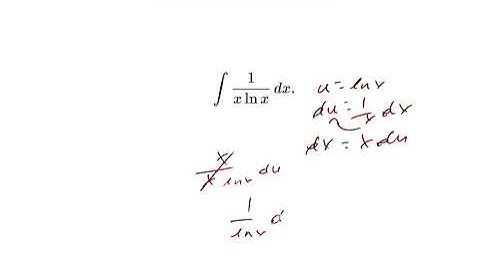 ∫ 1/(x ln x) dx.
u = lnx
du = 1/x dx
dx = x du
x/(x lnx) du
1/lnx d